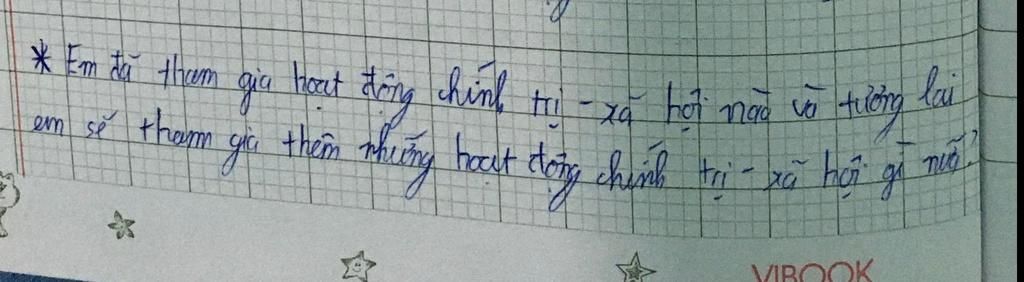 * Em đã tham gia hoạt động chính trị - xã hội nào và tương lai
em sẽ tham gia thêm những hoạt động chính trị - xã hội gì nữa?
VIBOOK